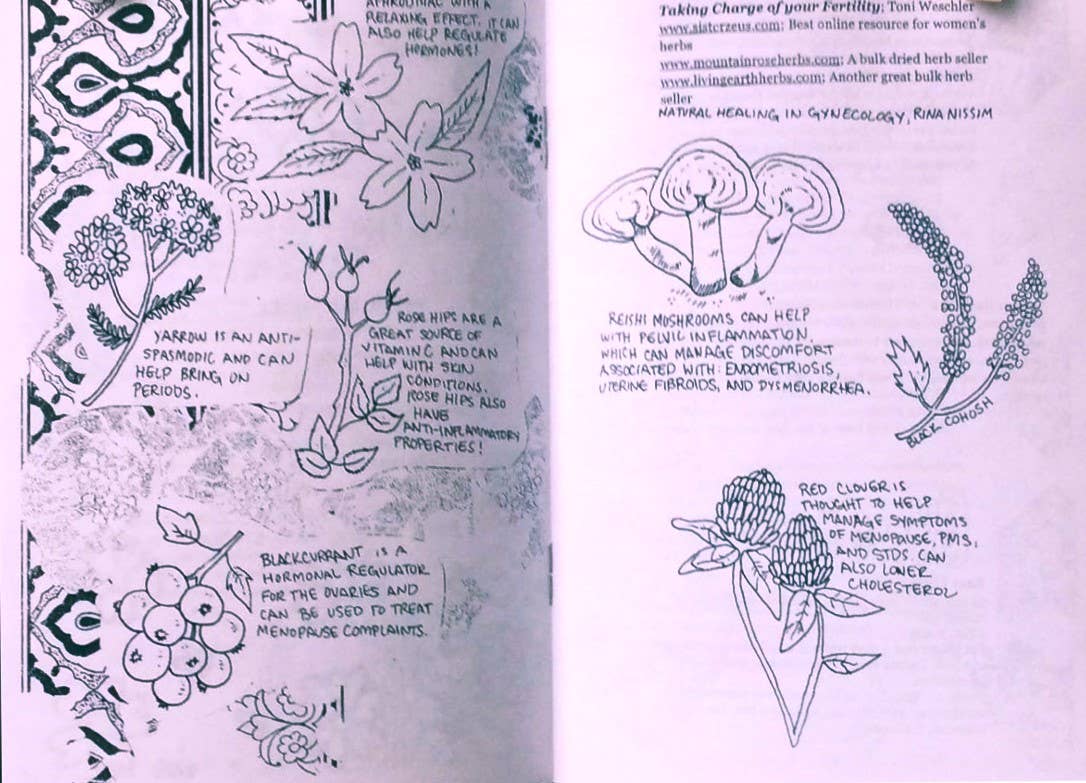 APHRODISIAC WITH A
RELAXING EFFECT. IT CAN
ALSO HELP REGULATE
HORMONES!
YARROW IS AN ANTI-
SPASMODIC AND CAN
HELP BRING ON
PERIODS.
ROSE HIPS ARE A
GREAT SOURCE OF
VITAMIN C AND CAN
HELP WITH SKIN
CONDITIONS.
ROSE HIPS ALSO
HAVE
ANTI-INFLAMMATORY
PROPERTIES!
BLACKCURRANT IS A
HORMONAL REGULATOR
FOR THE OVARIES AND
CAN BE USED TO TREAT
MENOPAUSE COMPLAINTS.
Taking Charge of your Fertility; Toni Weschler
www.sisterzeus.com: Best online resource for women's
herbs
www.mountainroseherbs.com: A bulk dried herb seller
www.livingearthherbs.com: Another great bulk herb
seller
NATURAL HEALING IN GYNECOLOGY, RINA NISSIM
REISHI MUSHROOMS CAN HELP
WITH PELVIC INFLAMMATION.
WHICH CAN MANAGE DISCOMFORT
ASSOCIATED WITH: ENDOMETRIOSIS,
UTERINE FIBROIDS, AND DYSMENORRHEA.
BLACK COHOSH
RED CLOVER IS
THOUGHT TO HELP
MANAGE SYMPTOMS
OF MENOPAUSE, PMS,
AND STDS. CAN
ALSO LOWER
CHOLESTEROL